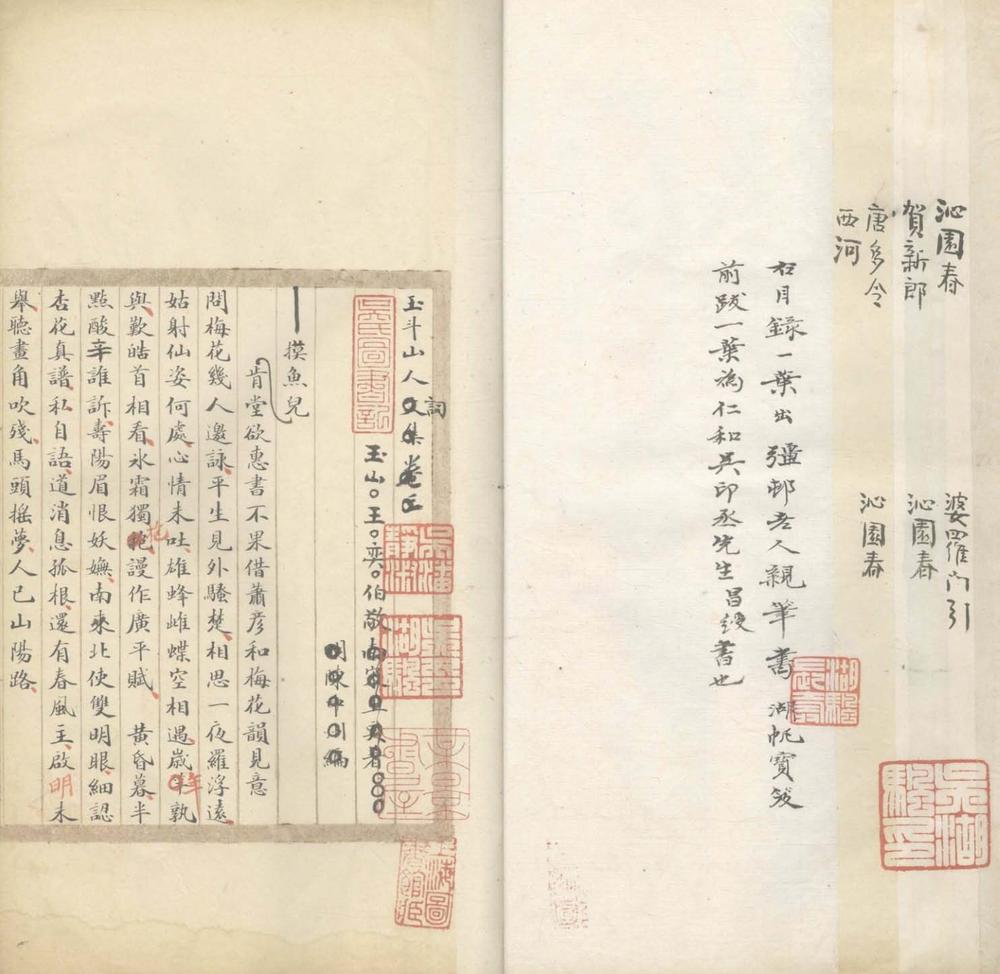 沁園春
賀新郎
唐多令
西河
婆羅門引
沁園春
沁園春
吳湖帆印
右目錄一葉出彊邨老人親筆書 湖帆寶笈
前跋一葉為仁和吳印丞先生昌綬書也
玉斗山人文集卷
詞
玉山王奕伯敬
明陳中州編
摸魚兒
肯堂欲惠書不果借蕭彥和梅花韻見意
問梅花幾人邀詠平生見外騷楚相思一夜羅浮遠
姑射仙姿何處心情未吐雄蜂雌蝶空相遇歲年孰
與歎皓首相看氷霜獨抱謾作廣平賦 黄昏暮半
點酸辛誰訴壽陽眉恨妖嫵南來北使雙明眼細認
杏花真譜私自語道消息孤根還有春風主啟明未
舉聽畫角吹殘馬頭搖夢人已山陽路
上海圖書館藏